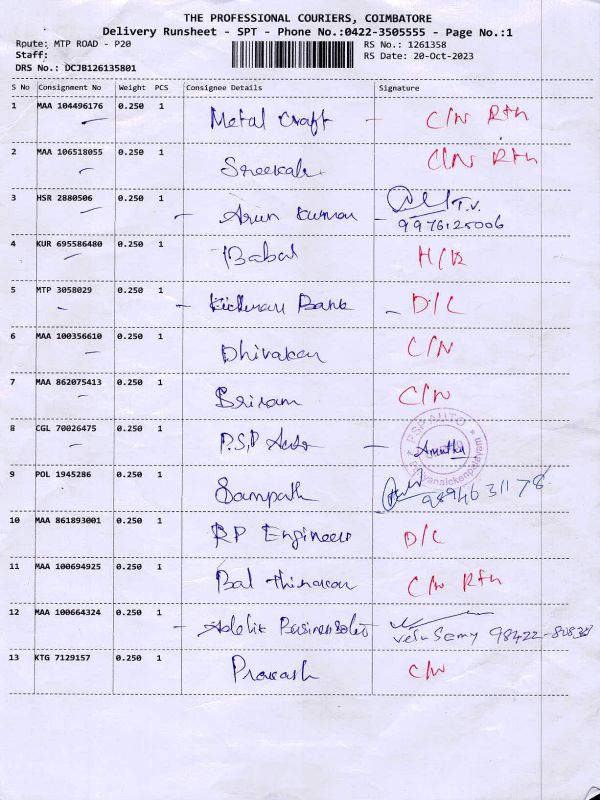 THE PROFESSIONAL COURIERS, COIMBATORE
Delivery Runsheet - SPT - Phone No.:0422-3505555 - Page No.:1
Route: MTP ROAD - P20 RS No.: 1261358
Staff: RS Date: 20-Oct-2023
DRS No.: DCJB126135801
S No Consignment No Weight PCS Consignee Details Signature
1 MAA 104496176 0.250 1 Metal Craft - C/N Rtn
2 MAA 106518055 0.250 1 C/N Rtn
3 HSR 2880506 0.250 1 - Arun Kumar - T.V.
9976125006
4 KUR 695586480 0.250 1 Babal
5 MTP 3058029 0.250 1 - Bank - D/C
6 MAA 100356610 0.250 1 Dhivakar C/N
7 MAA 862075413 0.250 1 Sriram C/N
8 CGL 70026475 0.250 1 P.S.P Auto - Amutha
PSP AUTO
9 POL 1945286 0.250 1 Sampath 9894631178
10 MAA 861893001 0.250 1 RP Engineers D/C
11 MAA 100694925 0.250 1 Bal C/N Rtn
12 MAA 100664324 0.250 1 - Velu Samy 98422-80838
13 KTG 7129157 0.250 1 Prakash C/N